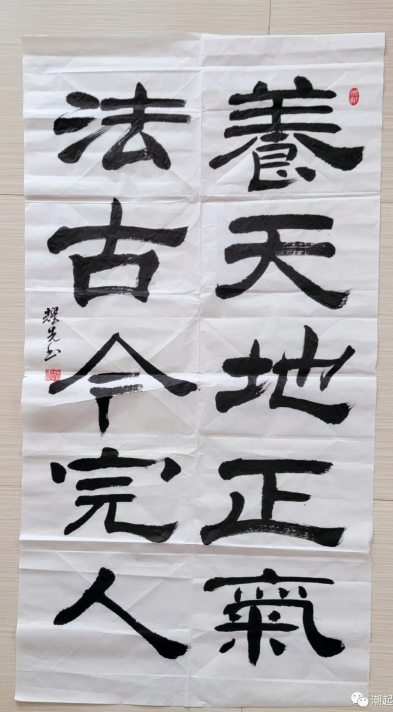 養天地正氣
法古今完人
潮起